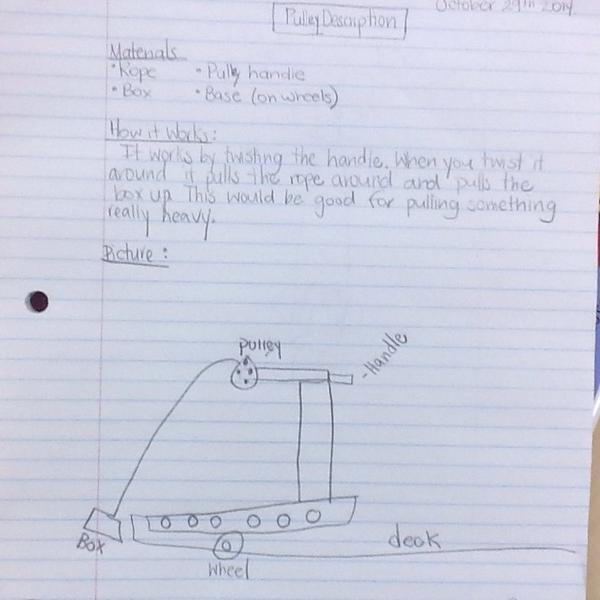 October 29th 2014
Pulley Description
Materials
• Rope • Pully handle
• Box • Base (on wheels)
How it Works:
It works by twisting the handle. When you twist it
around it pulls the rope around and pulls the
box up. This would be good for pulling something
really heavy.
Picture:
Pulley
- Handle
Box
deck
Wheel